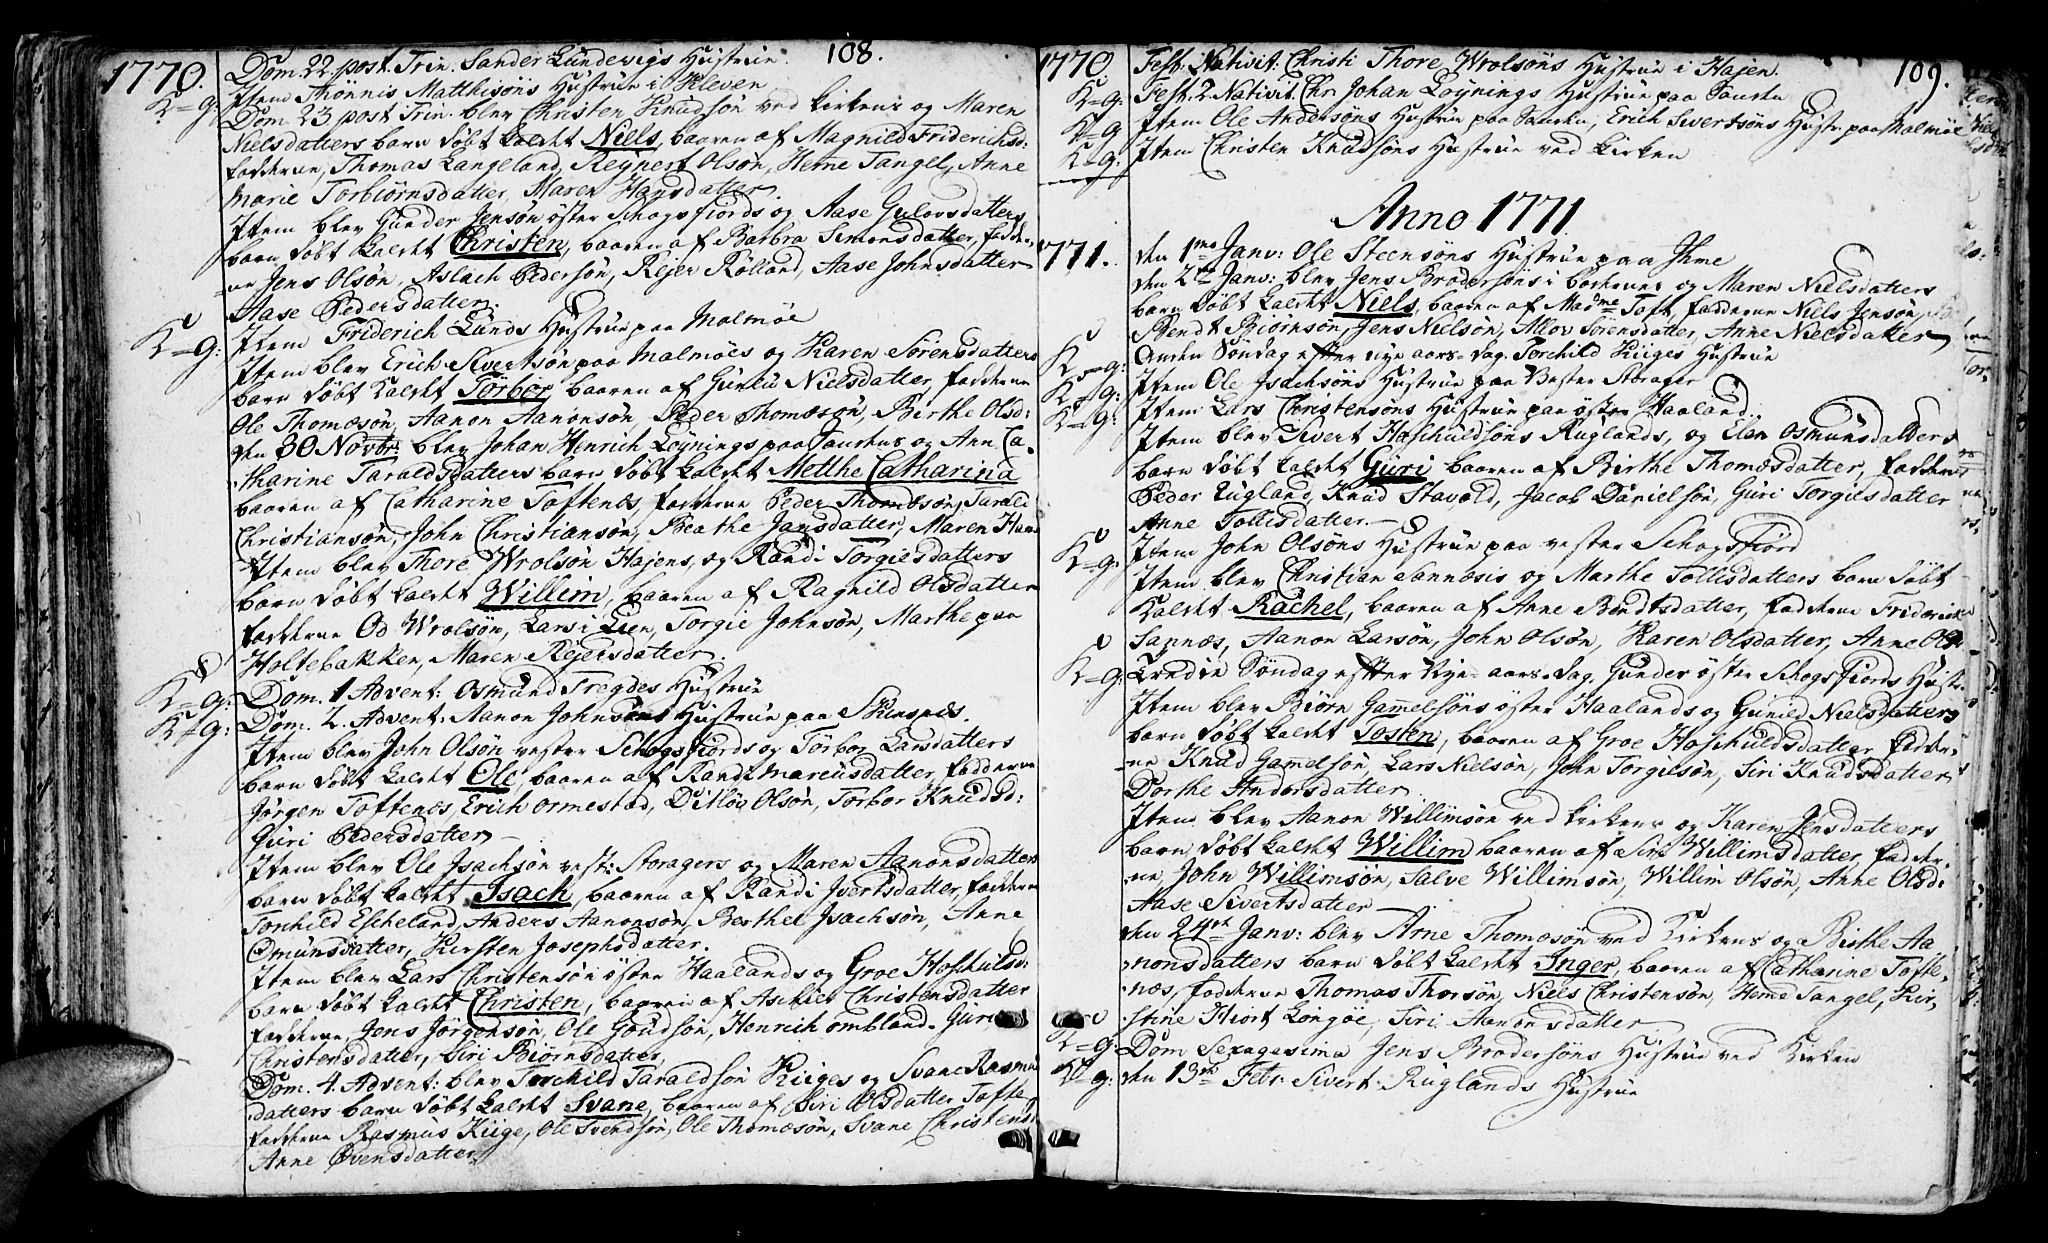 108.
1770. Dom. 22. post. Trin. Sander Lundevigs Hustrue.
Item Thönnis Matthisöns Hustrue i Kleven
K=g: Dom. 23 post Trin. blev Christen Knudsön ved Kirkens og Maren
Nielsdatters barn döbt kaldet Niels, baaren af Magnild Friderichsd:
fadderne, Thomas Langeland, Reynert Olsön, Herne Tangel, Anne
Marie Torbiörnsdatter, Maren Haagsdatter.
Item blev Gunder Jensön öster Schogsfiords og Aase Gulovsdatters
barn döbt kaldet Christen, baaren af Barbra Simonsdatter, fadder=
=ne Jens Olsön, Aslach Pedersön, Rejer Rölland, Aase Johnsdatter
Aase Pedersdatter.
K=g: Item Friderich Lunds Hustrue paa Malmöe
Item blev Erich Sivertsön paa Malmöes og Karen Sörensdatters
barn döbt kaldet Torbor, baaren af Gunlu Nielsdatter, fadderne
Ole Thomæsön, Aanon Aanonsön, Peder Thomæsön, Birthe Olsd:
den 30 Novbr: blev Johan Henrich Löynings paa Tauskus og Ann Ca=
=tharine Taraldsdatters barn döbt kaldet Metthe Catharina
baaren af Catharine Toftenæs, fadderne Peder Thomæsön, Tarald
Christiansön, John Christiansön, Beathe Jansdatter, Maren Hans
Item blev Thore Wrolsön Hajens, og Randi Torgiesdatters
barn döbt kaldet Willim, baaren af Ragnild Olsdatter
fadderne Od Wrolsön, Lars i Lien, Torgie Johnsön, Marthe paa
Holtebakken, Maren Rejersdatter.
K=g: Dom. 1 Advent: Osmund Tregdes Hustrue
K=g: Dom. 2. Advent: Aanon Johnsöns Hustrue paa Skinsnæs.
Item blev John Olsön vester Schogsfiords og Torbor Larsdatters
barn döbt kaldet Ole, baaren af Randi Marcusdatter, fadderne
Jörgen Toftenæs, Erich Ormestad, Ditlöv Olsön, Torbor Knudsd:
Guri Pedersdatter
Item blev Ole Isachsön vest: Storagers og Maren Aanonsdatters
barn döbt kaldet Isach, baaren af Randi Ivertsdatter, fadderne
Torchild Escheland, Anders Aanonsön, Berthel Isachsön, Anne
Omunsdatter, Kirsten Josephsdatter.
Item blev Lars Christensön öster Haalands og Groe Hoschulsd:
barn döbt kaldet Christen, baaren af Aschier Christensdatter
fadderne, Jens Jörgensön, Ole Goudsön, Henrich Ombland. Guri
Christensdatter, Siri Biörnsdatter,
Dom. 4. Advent: blev Torchild Taraldsön Kiiges og Svane Rasmus
datters barn döbt kaldet Svane, baaren af Siri Olsdatter Tofte
fadderne Rasmus Kiige, Ole Svendsön, Ole Thomæsön, Svane Christensd:
Anne Övensdatter
109.
1770. Fest: Nativit: Christi Thore Wrolsöns Hustrue i Hajen.
K=g: Fest. 2 Nativit. Chr. Johan Löynings Hustrue paa Tausku
K=g Item Ole Andersöns Hustrue paa Sanden, Erich Sivertsöns Hustr: paa Malmöe
K=g: Item Christen Knudsöns Hustrue ved Kirken
Anno 1771
1771. den 1me Janv: Ole Steensöns Hustrue paa Ihme
den 2den Janv: blev Jens Brodersöns i
og Maren Nielsdatters
barn döbt kaldet Niels, baaren af Madme Toft, fadderne Niels Jensön,
Bendt Biörnsön, Jens Nielsön, Allov Sörensdatter, Anne Nielsdatter
K=g: Anden Söndag efter Nye aars-dag. Torchild Kiiges Hustrue
K=g: Item Ole Isachsöns Hustrue paa Vester Storager
K=g: Item Lars Christensöns Hustrue paa öster Haaland.
Item blev Sivert Hoschuldsöns Ruglands, og Elen Osmunsdatters
barn döbt kaldet Guri baaren af Birthe Thomæsdatter, fadderne
Peder Rugland, Knud Stavold, Jacob Danielsön, Guri Torgiesdatter
Anne Tollisdatter.
K=g: Item John Olsöns Hustrue paa vester Schogsfiord
Item blev Christian Sannæsis og Marthe Tollisdatters barn döbt
kaldet Rachel, baaren af Anne Böndtsdatter, fadderne Friderich
Sannæs, Aanon Larsön, John Olsön, Karen Olsdatter, Anne Olsd
K=g: Tredie Söndag eftter Nye-aars-dag. Gunder öster Schogsfiords Hustr.
Item blev Biörn Gamelsöns öster Haalands og Gunild Nielsdatters
barn döbt kaldet Tosten, baaren af Groe Hoschuldsdatter, fadder=
=ne Knud Gamelsön, Lars Nielsön, John Torgilsön, Siri Knudsdatter
Dorthe Andersdatter.
Item blev Aanon Willimsön ved Kirkens og Karen Jensdatters
barn döbt kaldet Willim baaren af Siri Willimsdatter, fadder=
=ne John Willimsön, Salve Willimsön, Willim Olsön, Anne Olsd:
Aase Sivertsdatter
den 24de Janv: blev Arne Thomæsön ved Kirkens og Birthe Aa
=nonsdatters barn döbt kaldet Inger, baaren af Catharine Tofte=
=næs, fadderne Thomas Thorsön, Niels Christensön, Herne Tangel, Kir=
=stine Hiort Longöe, Siri Aanonsdatter
K=g: Dom Sexagesima Jens Brodersöns Hustrue ved Kirken
K=g: den 13de Febr: Sivert Ruglands Hustrue